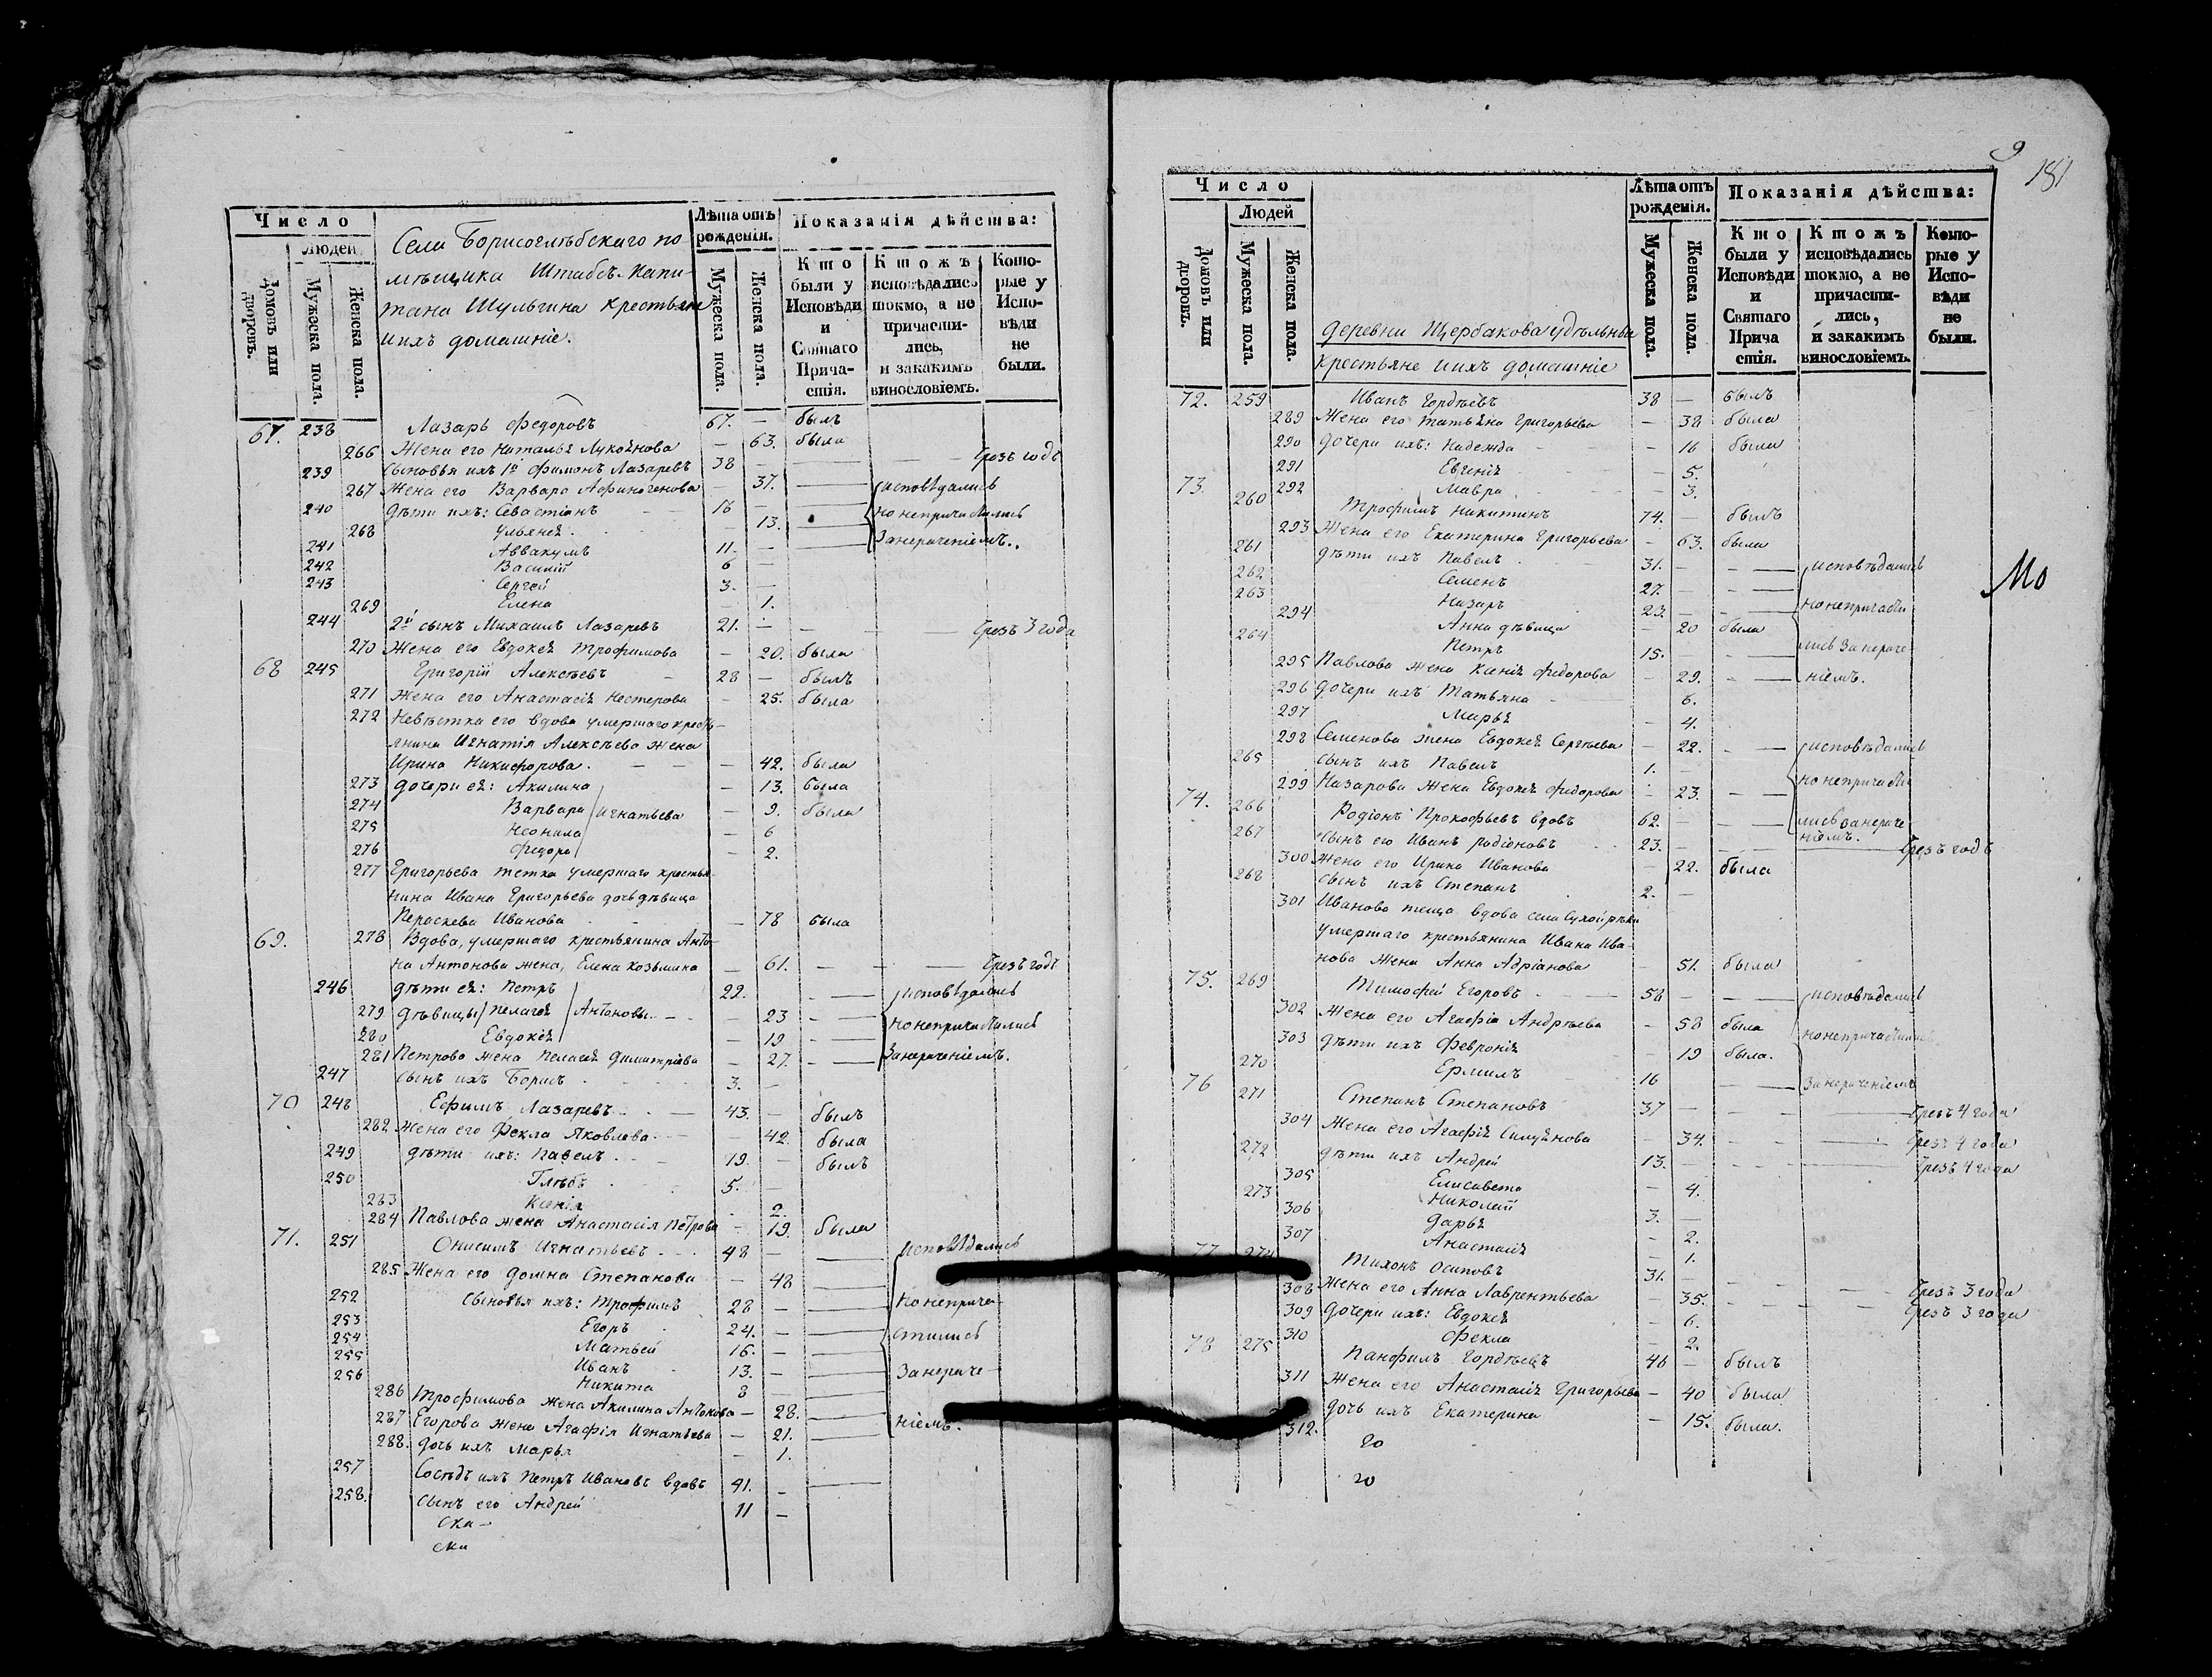 Число
Людей
Домовъ или дворовъ.
Мужеска пола.
Женска пола.
Села Борисоглѣбскаго по
мѣщика Штабсъ-Капи-
тана Шульгина крестьяне
и ихъ домашніе.
Лѣта отъ рожденія.
Мужеска пола.
Женска пола.
Показанія дѣйства:
Кто были у Исповѣди и Святаго Прича-стія.
Ктожъ исповѣдались токмо, а не причасти-лись, и закакимъ винословіемъ.
Кото-рые у Испо-вѣди не были.
67. 238 Лазарь Федоровъ 67. — былъ
266 Жена его Наталья — 63. была
239 Сыновья ихъ 1й Филимонъ Лазаревъ 38 — чрезъ годъ
267 Жена его Варвара Афиногенова — 37. — исповѣдались
240 Дѣти ихъ: Севастіанъ 16 — но непричастились
268 Ульянея — 13. —
241 Аввакумъ 11. — Занераченіемъ.
242 Василій 6 —
243 Сергей 3. —
269 Елена 1.
244 2й сынъ Михаилъ Лазаревъ 21. — чрезъ 3 года
270 Жена его Евдокея Трофимова — 20. была
68 245 Григорій Алексѣевъ 28 — былъ
271 Жена его Анастасія Нестерова — 25. была
272 Невѣстка его вдова умершаго кресть-
янина Игнатія Алексѣева жена
Ирина Никифорова. — 42. была
273 Дочери ея: Акилина — 13. была
274 Варвара Игнатьева — 9. была
275 Неонила — 6
276 Федора — 2.
277 Григорьева тетка умершаго крестья-
нина Ивана Григорьева дочь дѣвица
Параскева Иванова — 78 была
69. 278 Вдова, умершаго крестьянина Анто-
на Антонова жена, Елена Козьмина — 61. — чрезъ годъ
246 Дѣти ея: Петръ 22. — исповѣдались
279 Дѣвицы Пелагея Антоновы — 23 — но непричастились
280 Евдокія — 19 —
281 Петрова жена Пелагея Димитріева — 27. — Занераченіемъ.
247 Сынъ ихъ Борисъ 3. —
70 248 Ефимъ Лазаревъ 43. — былъ
282 Жена его Фекла Яковлева — 42. была
249 Дѣти ихъ: Павелъ 19. — былъ
250 Глѣбъ 5. —
283 Ксенія 2.
284 Павлова жена Анастасія Петрова — 19. была
71. 251 Онисимъ Игнатьевъ 48 — исповѣдались
285 Жена его Домна Степанова — 48 —
252 Сыновья ихъ: Трофимъ 28 — но неприча-
253 Егоръ 24. — стились
254 Матвей 16. —
255 Иванъ 13. — Занераче-
256 Никита 8 —
286 Трофимова жена Акилина Антонова — 28. —
287 Егорова жена Агафія Игнатьева — 21. — ніемъ.
288. Дочь ихъ Марья — 1.
257 Сосѣдъ ихъ Петръ Ивановъ вдовъ 41. —
258. Сынъ его Андрей 11 —
ска-
ска
9
181
Число
Людей
Домовъ или дворовъ.
Мужеска пола.
Женска пола.
Деревни Щербакова удѣльные
крестьяне и ихъ домашніе
Лѣта отъ рожденія.
Мужеска пола.
Женска пола.
Показанія дѣйства:
Кто были у Исповѣди и Святаго Прича стія.
Ктожъ исповѣдались токмо, а не причасти-лись, и закакимъ винословіемъ.
Кото-рые у Испо-вѣди не были.
72. 259 Иванъ Гордѣевъ 38 — былъ
289 Жена его Татьяна Григорьева — 38 была
290 Дочери ихъ: Надежда — 16 была
291 Евгенія — 5.
292 Мавра — 3.
73. 260 Трофимъ Никитинъ 74. — былъ
293 Жена его Екатерина Григорьева — 63. была
261 Дѣти ихъ Павелъ 31. — исповѣдались
262 Семенъ 27. —
263 Назаръ 23. — но непричасти-
294 Анна дѣвица — 20 была
264 Петръ 15. — лись Занераче-
295 Павлова жена Ксенія Федорова — 29. — ніемъ.
296 Дочери ихъ Татьяна — 6.
297 Марья — 4.
298 Семенова жена Евдокея Сергѣева — 22. — исповѣдались
265 Сынъ ихъ Павелъ 1. —
299 Назарова жена Евдокея Федорова — 23. — но непричасти-
74. 266 Родіонъ Прокофьевъ вдовъ 62. — лись Занераче-
ніемъ.
267 Сынъ его Иванъ Родіоновъ 23. — чрезъ годъ
300 Жена его Ирина Иванова — 22. была
268 Сынъ ихъ Степанъ 2. —
301 Иванова теща вдова села Сухой рѣки
умершаго крестьянина Ивана Ива-
нова жена Анна Адріанова — 51. была
75. 269 Тимофей Егоровъ 58 — исповѣдались
302 Жена его Агафія Андрѣева — 58 была
303 Дѣти ихъ Февронія — 19 была. но непричастились
270 Ермилъ 16 — Занераченіемъ
76 271 Степанъ Степановъ 37 — чрезъ 4 года
304 Жена его Агафія — 34. — чрезъ 4 года
272 Дѣти ихъ Андрей 13. — чрезъ 4 года
305 Елисавета — 4.
273 Николай 3. —
306 Дарья — 2.
307 Анастасія — 1.
77 274 Тихонъ Осиповъ 31. — чрезъ 3 года
308 Жена его Анна Лаврентьева — 35. — чрезъ 3 года
309 Дочери ихъ: Евдокея — 6.
310 Фекла — 2.
78 275 Панфилъ Гордѣевъ 46 — былъ
311 Жена его Анастасія Григорьева — 40 была
312. Дочь ихъ Екатерина — 15. была.
го
го